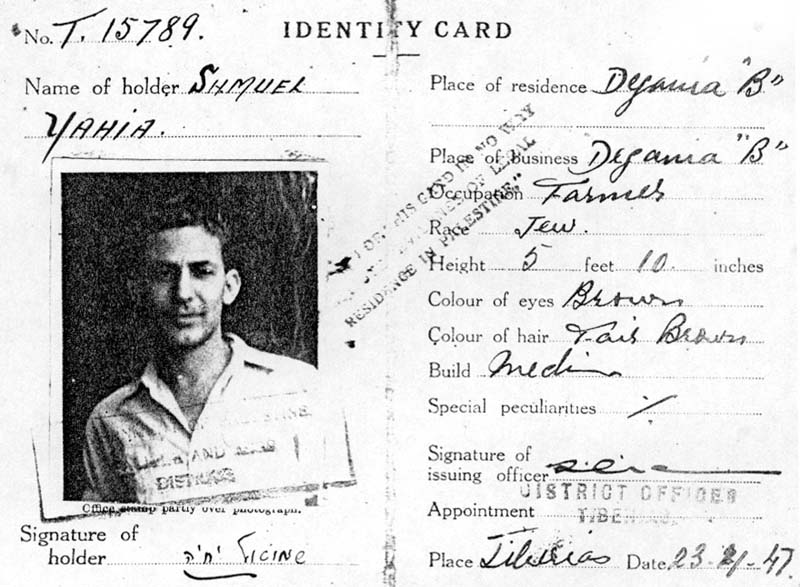 No. T. 15789.
IDENTITY CARD
Name of holder SHMUEL
YAHIA.
Office stamp partly over photograph.
Signature of
holder שמואל יחיה
Place of residence Degania "B"
Place of Business Degania "B"
Occupation Farmer
Race Jew.
Height 5 feet 10 inches
Colour of eyes Brown
Colour of hair Fair Brown
Build Medium
Special peculiarities /
Signature of
issuing officer
DISTRICT OFFICER
Appointment
TIBERIAS.
Place Tiberias Date 23-
OF THIS CARD IS NO WAY
OF LEGAL
RESIDENCE IN PALESTINE."
AND
DISTRICTS